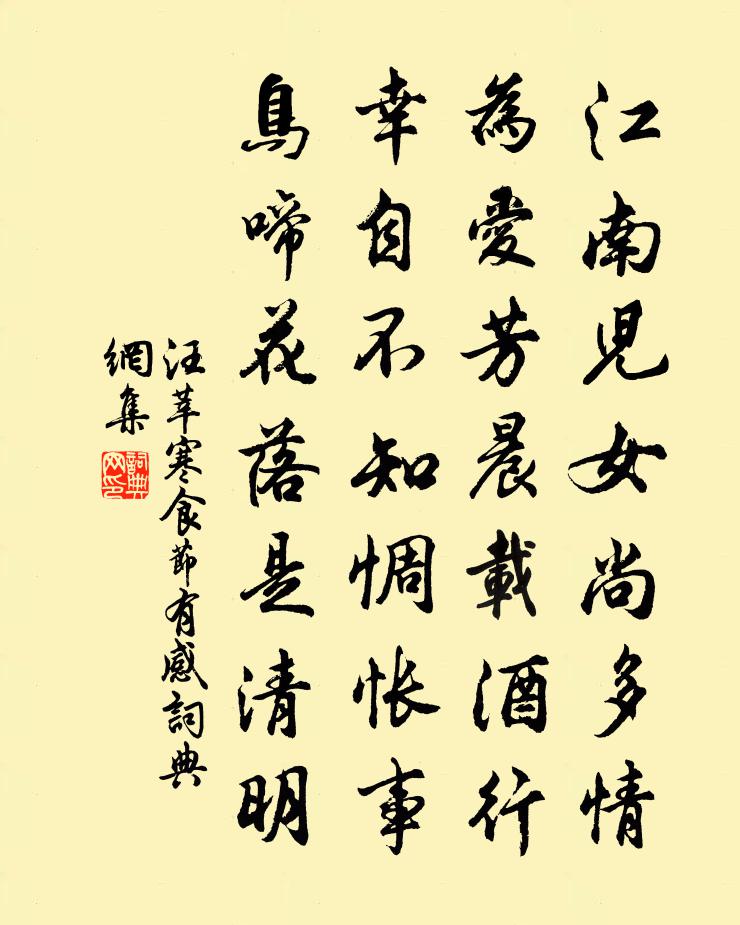 江南児女尚多情
為愛芳晨載酒行
幸自不知惆悵事
鳥啼花落是清明
汪莘寒食節有感詞典
網集
詞典
网印